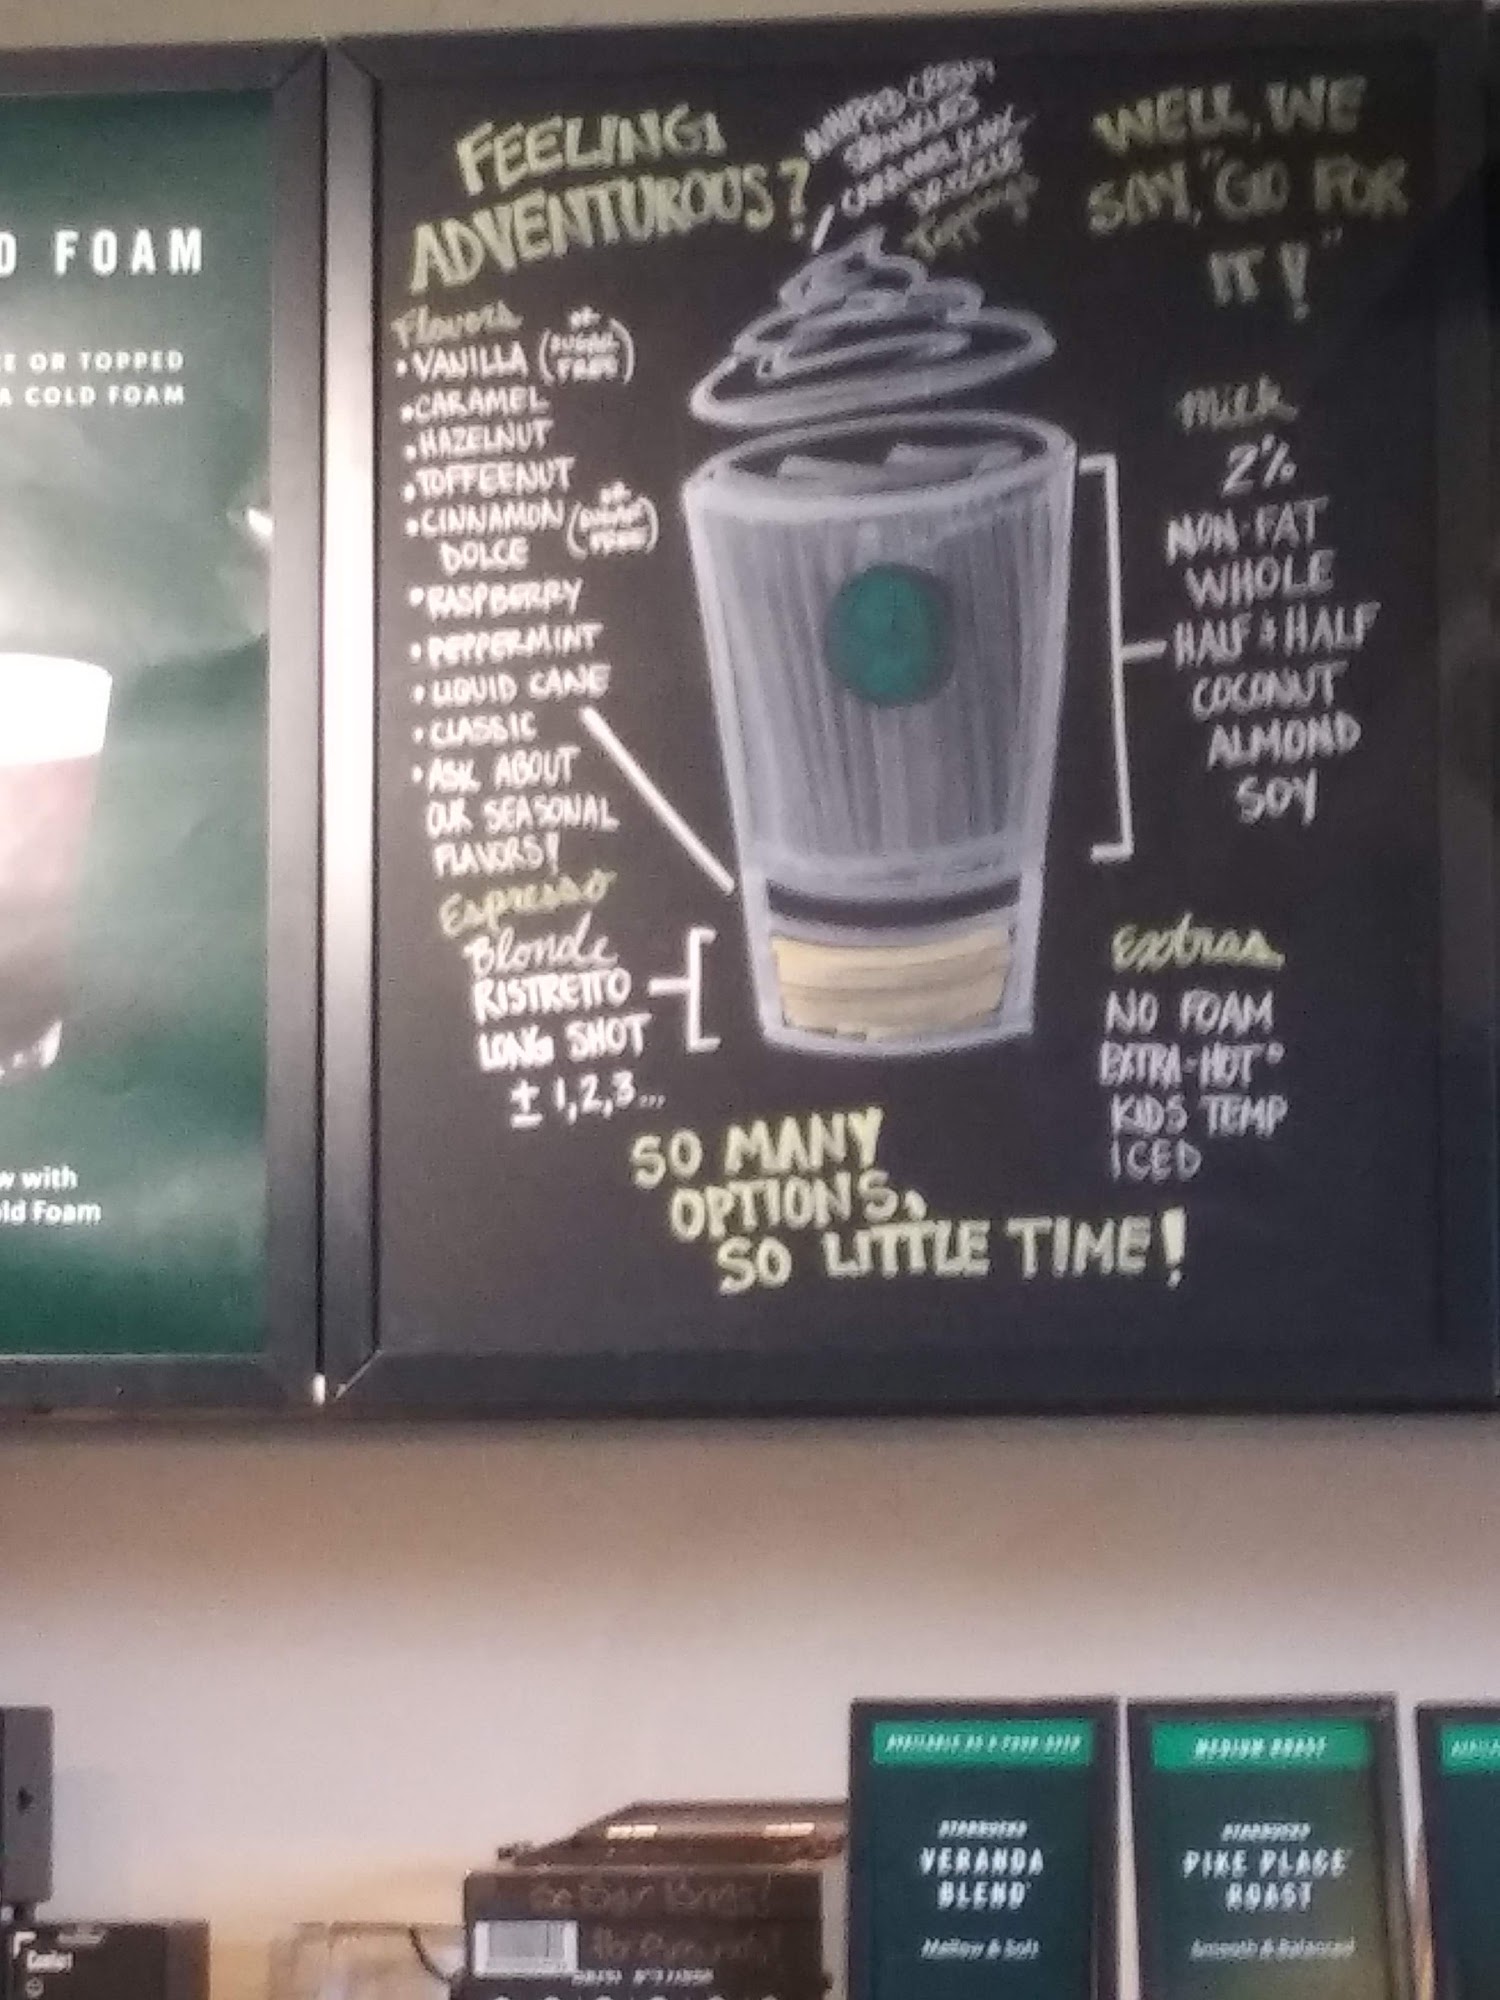 D FOAM
OR TOPPED
A COLD FOAM
w with
old Foam
FEELING
ADVENTUROUS?
WHIPPED CREAM
SPRINKLES
CARAMEL
DRIZZLE
Toppings
WELL, WE
SAY, "GO FOR
IT!"
Flavors
• VANILLA (or SUGAR FREE)
• CARAMEL
• HAZELNUT
• TOFFEENUT
• CINNAMON (or SUGAR FREE)
DOLCE
• RASPBERRY
• PEPPERMINT
• LIQUID CANE
• CLASSIC
• ASK ABOUT
OUR SEASONAL
FLAVORS!
Espresso
Blonde
RISTRETTO
LONG SHOT
± 1,2,3...
Milk
2%
NON-FAT
WHOLE
HALF & HALF
COCONUT
ALMOND
SOY
Extras
NO FOAM
EXTRA-HOT°
KIDS TEMP
ICED
SO MANY
OPTIONS,
SO LITTLE TIME!
STARBUCKS
VERANDA
BLEND
Mellow & Soft
MEDIUM ROAST
STARBUCKS
PIKE PLACE
ROAST
Smooth & Balanced